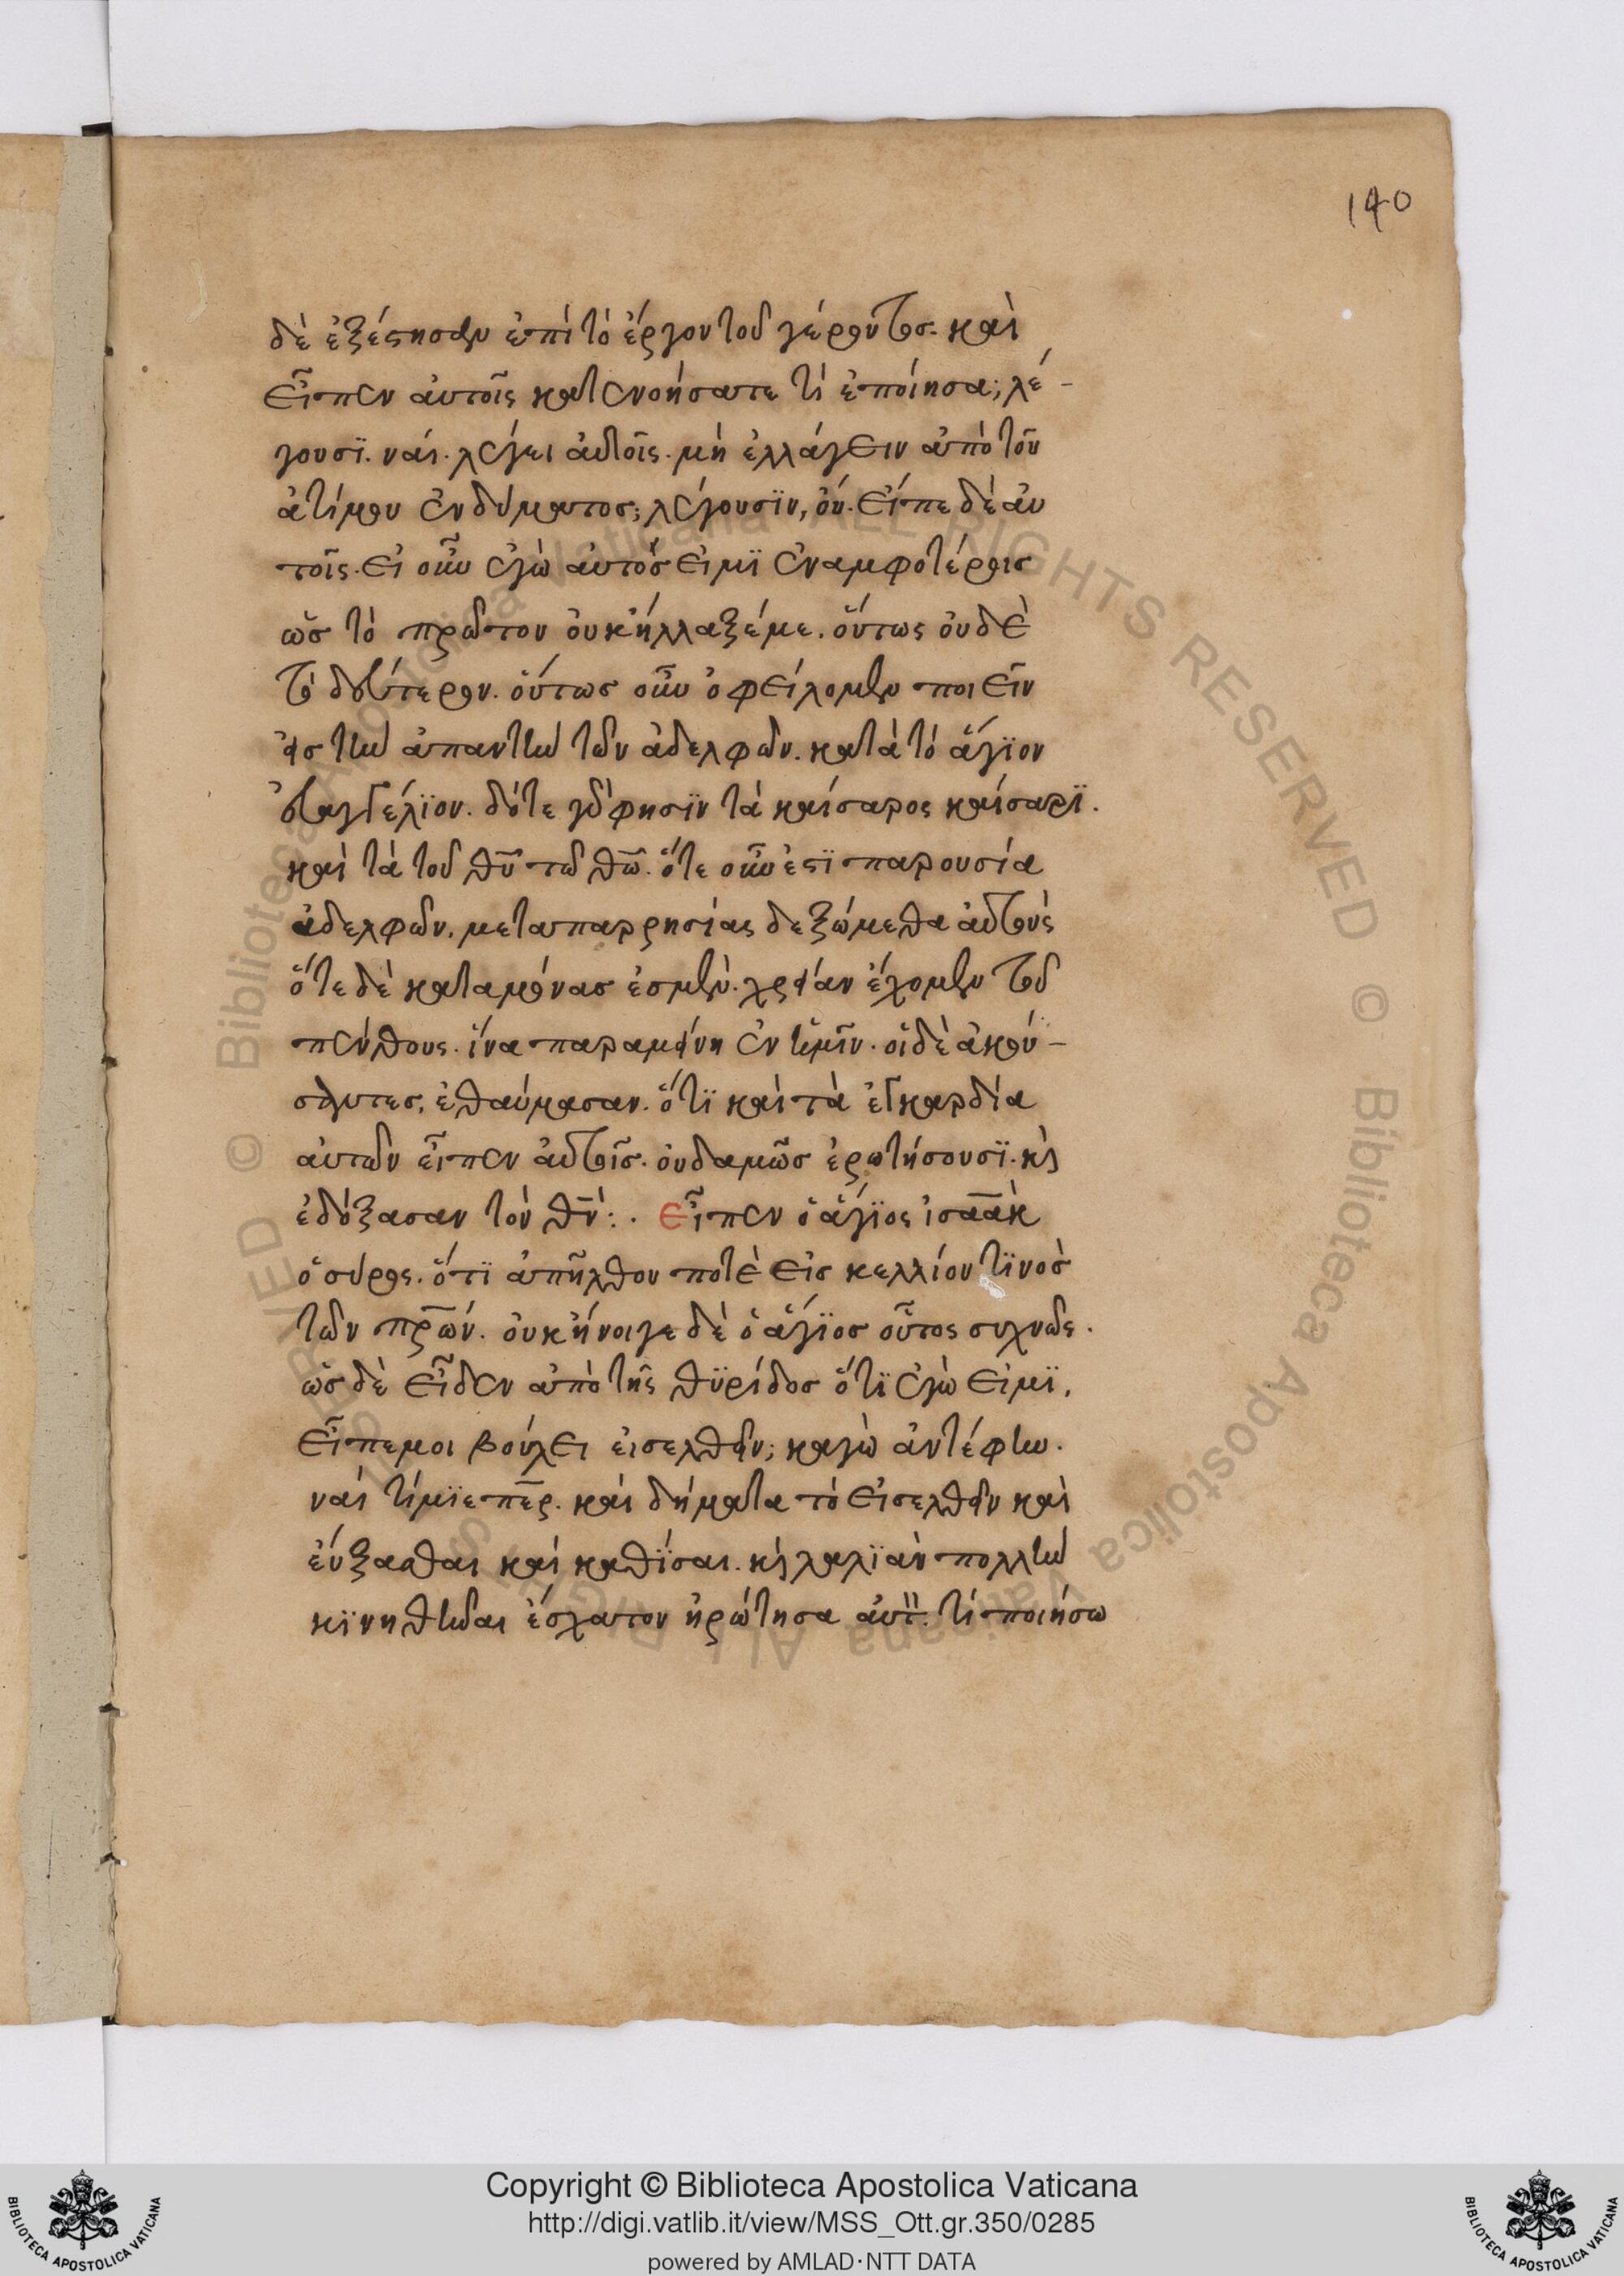 140
δὲ ἐξέστησαν ἐπὶ τὸ ἔργον τοῦ γέροντος. καὶ
εἶπεν ἀυτοῖς κατενοήσατε τί ἐποίησα; λέ-
γουσϊ. ναί. λέγει ἀυτοῖς. μὴ ἐλλάγειν ἀπὸ τοῦ
ἀτίμου ἐνδύματος; λέγουσϊν, οὔ. εἶπε δὲ αὐ
τοῖς. εἰ οὖν ἐγὼ ἀυτός εἰμϊ ἐν αμφοτέροις
ὡς τὸ πρῶτον ὀυκ ἤλλαξέ με. ὅυτως ὀυδὲ
τὸ δεύτερον. ὅυτως οὖν ὀφείλομεν ποιεῖν
εἰς τὴν ἀπαντὴν τῶν ἀδελφῶν. κατὰ τὸ ἅγϊον
ἐυαγγέλϊον. δότε γάρ φησϊν τὰ καίσαρος καίσαρϊ.
καὶ τὰ τοῦ θ̅υ̅ τῶ θ̅ω̅. ὅτε οὖν ἐστϊ παρουσία
ἀδελφῶν. μετα παρρησίας δεξώμεθα ἀυτούς
ὅτε δὲ καταμόνας ἐσμὲν. χρείαν ἔχομεν τοῦ
πένθους. ἵνα παραμείνη ἐν ἡμῖν. οἱ δὲ ἀκού-
σαντες, ἐθαύμασαν. ὅτϊ καὶ τὰ ἐγκαρδία
ἀυτῶν εἶπεν ἀυτοῖς. ὀυδαμῶς ἐρωτήσουσϊ. κὶ
ἐδόξασαν τὸν θ̅ν̅:. Εἶπεν ὁ ἅγϊος ἰσαὰκ
ὁ σύρος. ὅτϊ ἀπῆλθον ποτὲ εἰς κελλίον τϊνὸς
τῶν π̅ρ̅ων. ὀυκ ἤνοιγε δὲ ὁ ἅγϊος οὗτος συχνῶς.
ὡς δὲ εἶδεν ἀπὸ τῆς θϋρίδος ὅτϊ ἐγὼ εἰμϊ,
εἶπε μοι βούλει ἐισελθεῖν; καγὼ ἀντέφην.
ναὶ τίμϊε π̅ε̅ρ. καὶ δήματα τὸ εἰσελθεῖν καὶ
ἐύξασθαι καὶ καθϊσαι. κὶ λαλϊὰν πολλὴν
κϊνηθῆναι ἔσχατον ἠρώτησα ἀυτ. τί ποιήσω
Copyright © Biblioteca Apostolica Vaticana
http://digi.vatlib.it/view/MSS_Ott.gr.350/0285
powered by AMLAD·NTT DATA
BIBLIOTECA APOSTOLICA VATICANA
BIBLIOTECA APOSTOLICA VATICANA